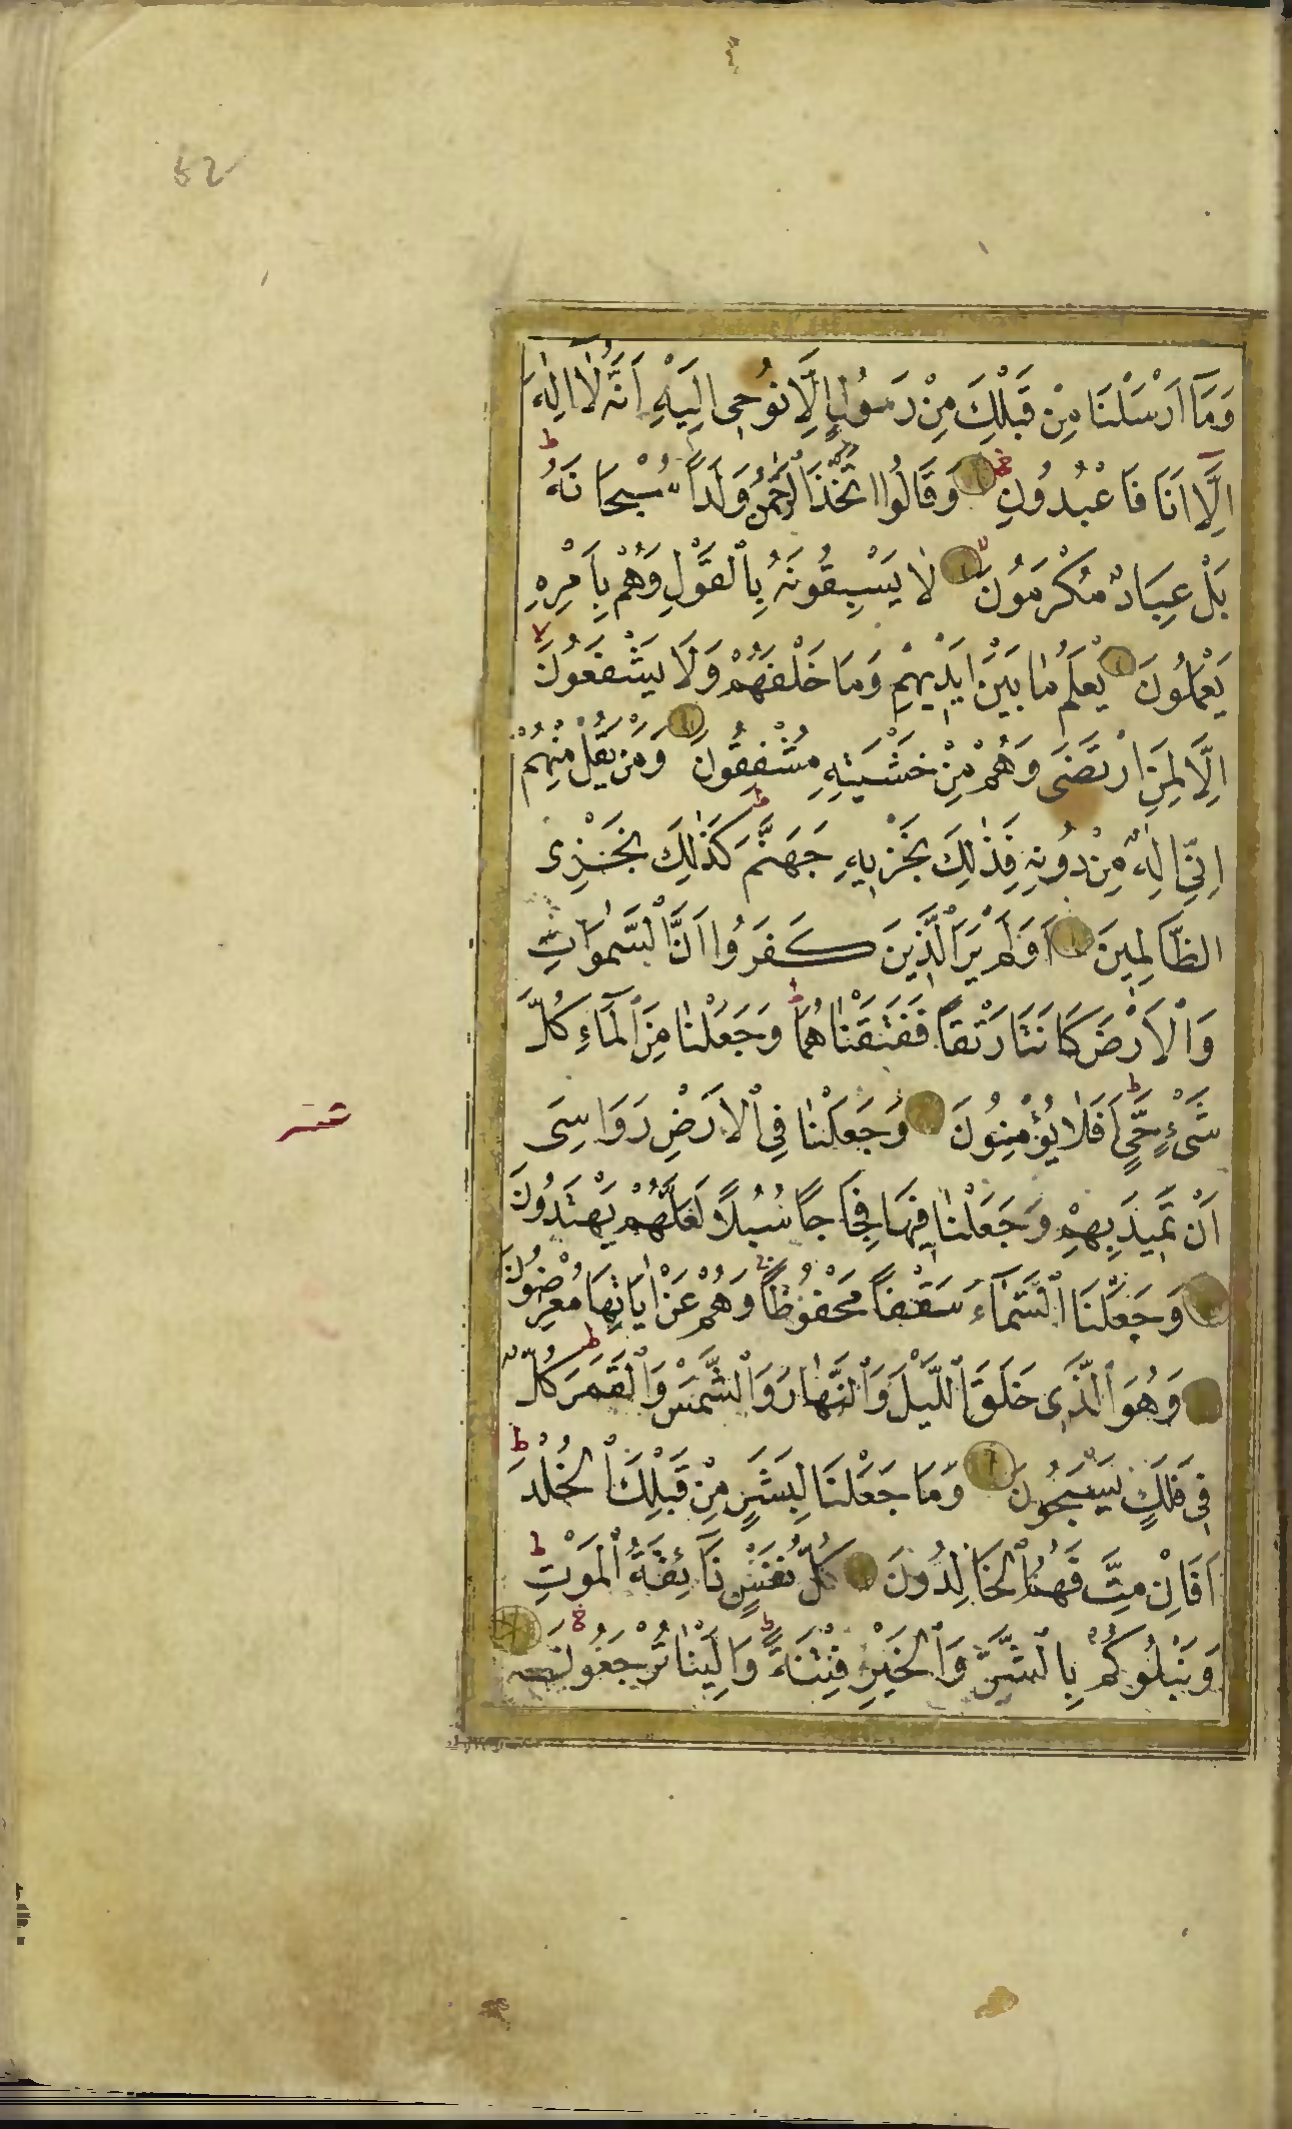 52
وَمَآ اَرْسَلْنَا مِنْ قَبْلِكَ مِنْ رَسُولٍ اِلَّا نُوحِى اِلَيْهِ اَنَّهُ لَآ اِلٰهَ
اِلَّآ اَنَا فَاعْبُدُونِ وَقَالُوا اتَّخَذَ الرَّحْمٰنُ وَلَدًا سُبْحَانَهُ ط
بَلْ عِبَادٌ مُكْرَمُونَ لا لَا يَسْبِقُونَهُ بِالْقَوْلِ وَهُمْ بِاَمْرِهِ
يَعْمَلُونَ يَعْلَمُ مَا بَيْنَ اَيْدِيهِمْ وَمَا خَلْفَهُمْ وَلَا يَشْفَعُونَ لا
اِلَّا لِمَنِ ارْتَضٰى وَهُمْ مِنْ خَشْيَتِهِ مُشْفِقُونَ وَمَنْ يَقُلْ مِنْهُمْ
اِنِّىٓ اِلٰهٌ مِنْ دُونِهِ فَذٰلِكَ نَجْزِيهِ جَهَنَّمَ ط كَذٰلِكَ نَجْزِى
الظَّالِمِينَ اَوَلَمْ يَرَ الَّذِينَ كَفَرُوٓا اَنَّ السَّمٰوَاتِ
وَالْاَرْضَ كَانَتَا رَتْقًا فَفَتَقْنَاهُمَا ط وَجَعَلْنَا مِنَ الْمَآءِ كُلَّ
شَىْءٍ حَىٍّ ط اَفَلَا يُؤْمِنُونَ وَجَعَلْنَا فِى الْاَرْضِ رَوَاسِىَ
اَنْ تَمِيدَ بِهِمْ وَجَعَلْنَا فِيهَا فِجَاجًا سُبُلًا لَعَلَّهُمْ يَهْتَدُونَ
وَجَعَلْنَا السَّمَآءَ سَقْفًا مَحْفُوظًا وَهُمْ عَنْ اٰيَاتِهَا مُعْرِضُونَ
وَهُوَ الَّذِى خَلَقَ اللَّيْلَ وَالنَّهَارَ وَالشَّمْسَ وَالْقَمَرَ ط كُلٌّ
فِى فَلَكٍ يَسْبَحُونَ وَمَا جَعَلْنَا لِبَشَرٍ مِنْ قَبْلِكَ الْخُلْدَ ط
اَفَاِنْ مِتَّ فَهُمُ الْخَالِدُونَ كُلُّ نَفْسٍ ذَآئِقَةُ الْمَوْتِ ط
وَنَبْلُوكُمْ بِالشَّرِّ وَالْخَيْرِ فِتْنَةً ط وَاِلَيْنَا تُرْجَعُونَ